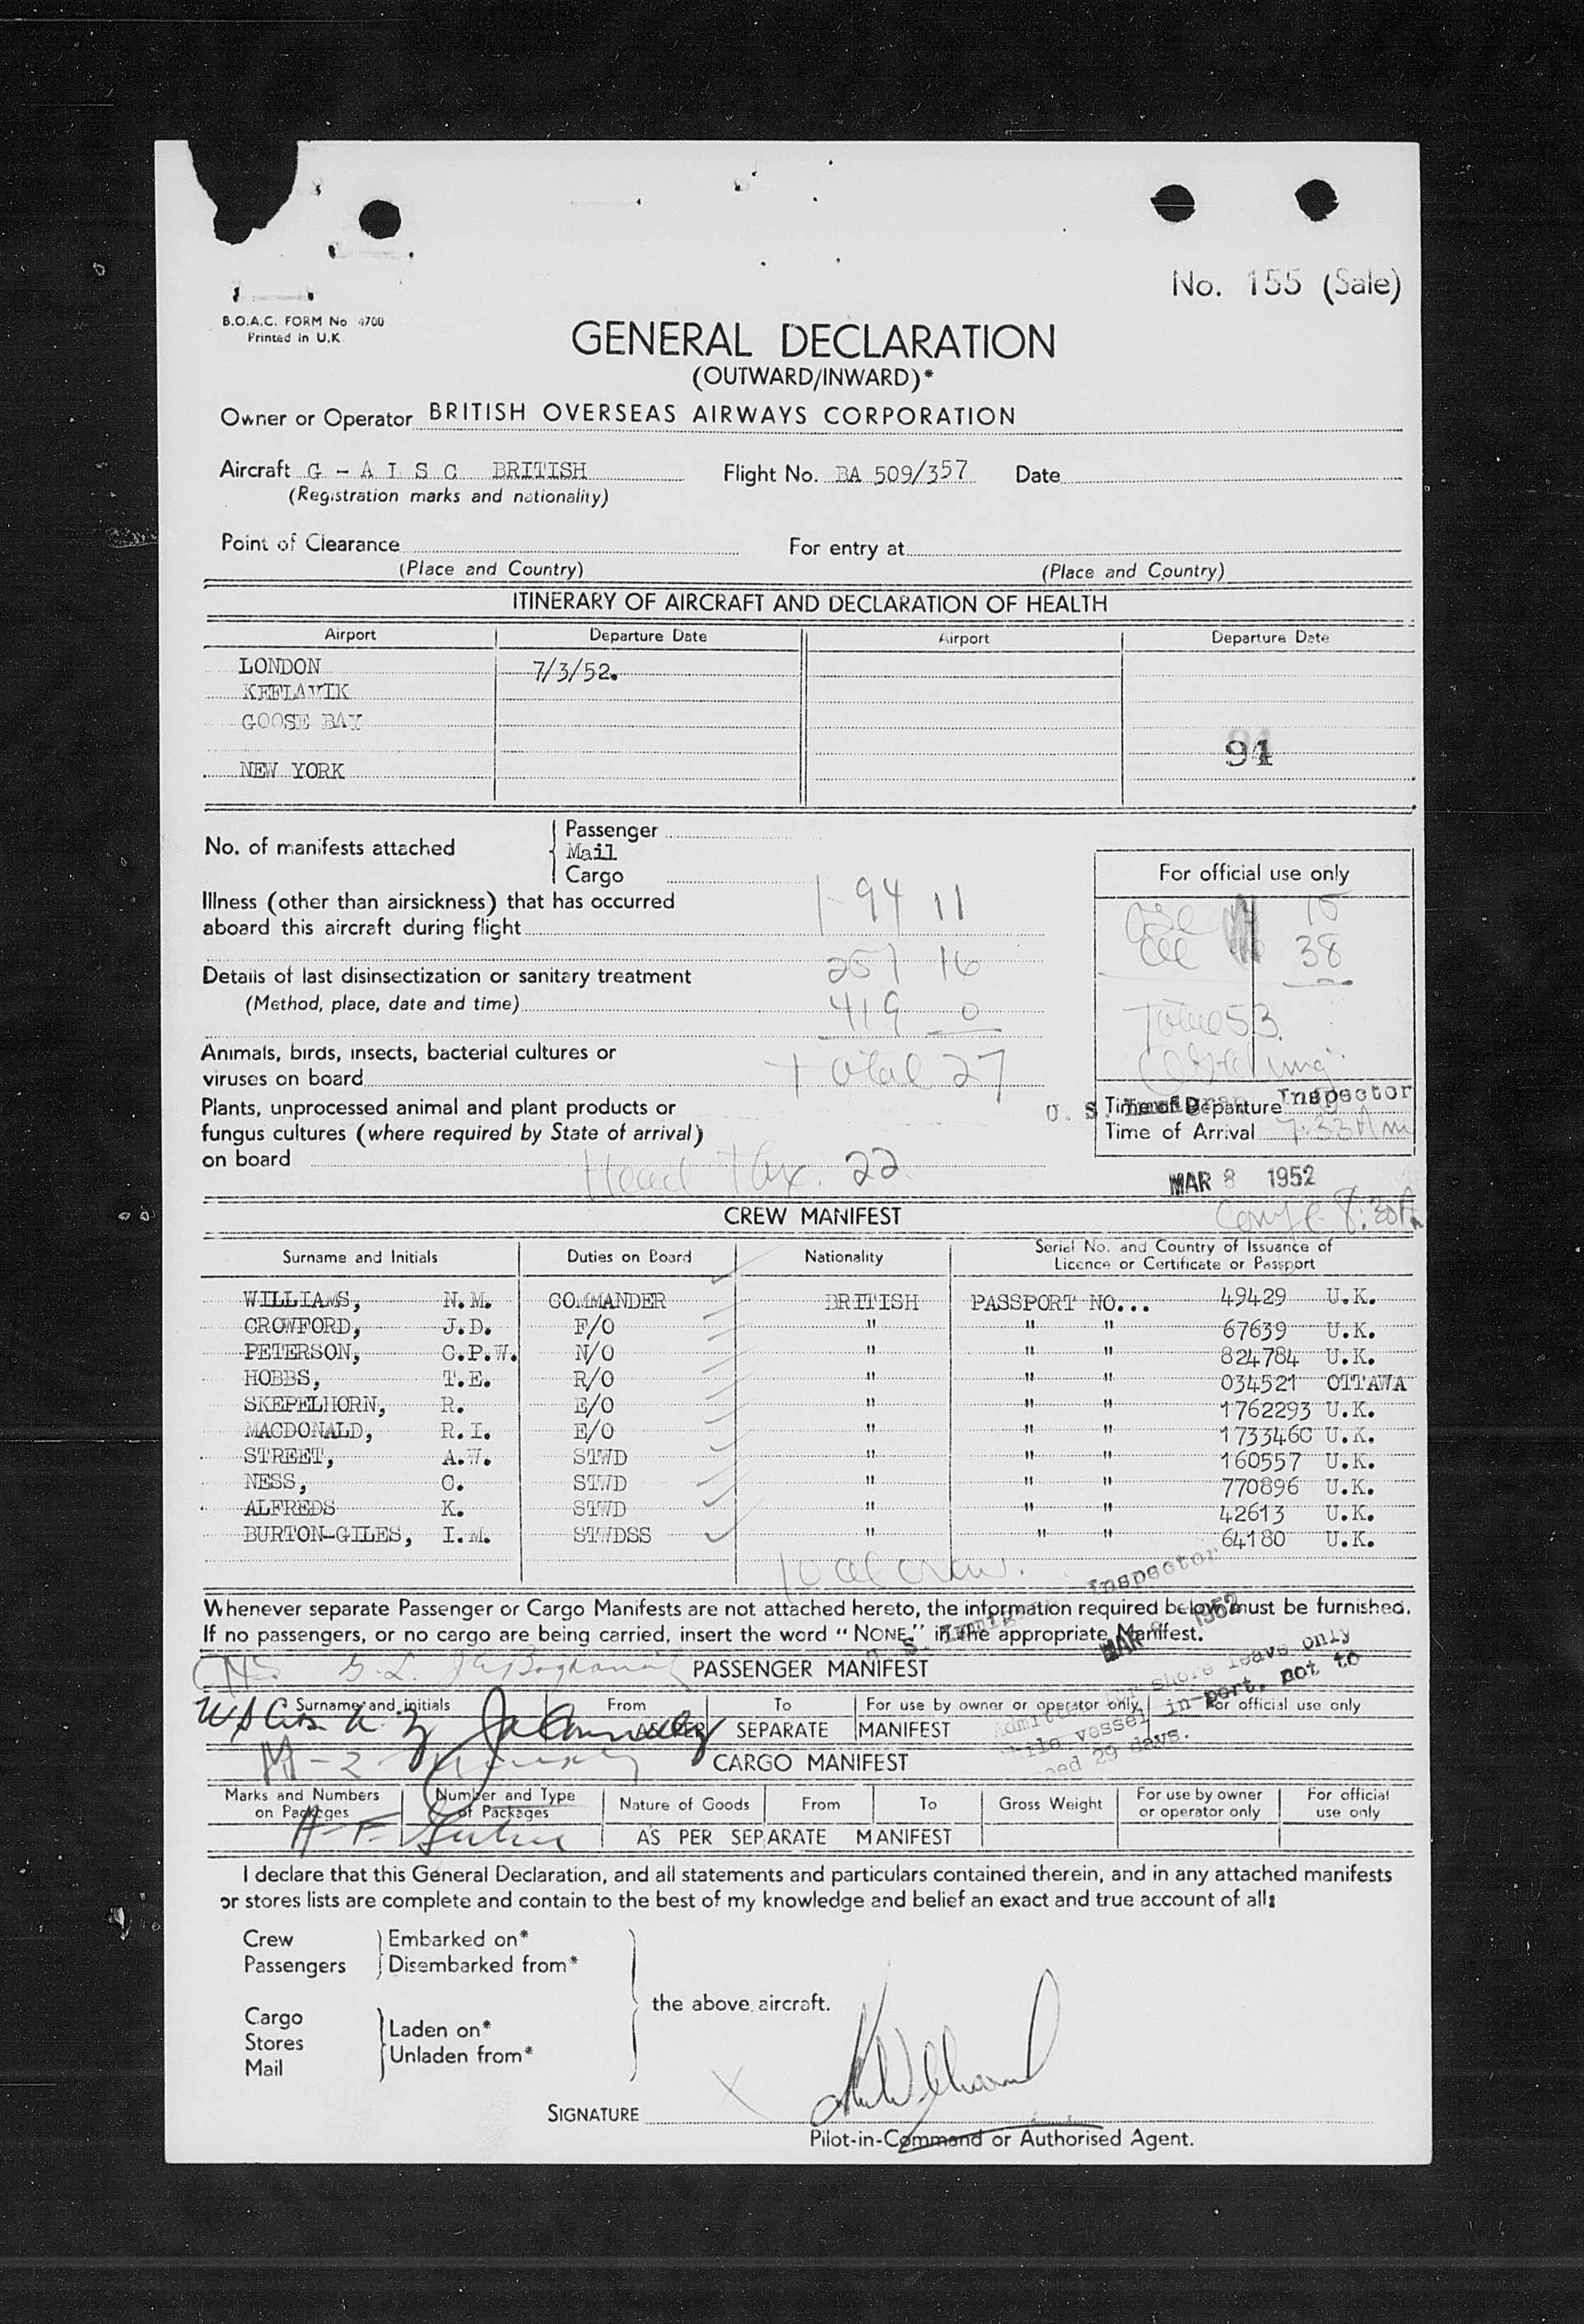 No. 155 (Sale)
B.O.A.C. FORM No 4700
Printed in U.K.
GENERAL DECLARATION
(OUTWARD/INWARD)*
Owner or Operator BRITISH OVERSEAS AIRWAYS CORPORATION
Aircraft G - A I S C BRITISH Flight No. BA 509/357 Date
(Registration marks and nationality)
Point of Clearance For entry at
(Place and Country) (Place and Country)
ITINERARY OF AIRCRAFT AND DECLARATION OF HEALTH
Airport Departure Date Airport Departure Date
LONDON 7/3/52.
KEFLAVIK
GOOSE BAY
94
NEW YORK
No. of manifests attached
Passenger
Mail
Cargo
For official use only
Illness (other than airsickness) that has occurred
aboard this aircraft during flight
1-94 11
15
38
Details of last disinsectization or sanitary treatment
257 16
(Method, place, date and time)
419 0
Total 53
Animals, birds, insects, bacterial cultures or
viruses on board
Total 27
Plants, unprocessed animal and plant products or
fungus cultures (where required by State of arrival)
on board
Head Tax. 22
U. S. Immigrant Inspector
Time of Departure
Time of Arrival 7:33 Am
MAR 8 1952
CREW MANIFEST
Surname and Initials Duties on Board Nationality Serial No. and Country of Issuance of
Licence or Certificate or Passport
WILLIAMS, N.M. COMMANDER BRITISH PASSPORT NO... 49429 U.K.
CROWFORD, J.D. F/O " " " 67639 U.K.
PETERSON, C.P.W. N/O " " " 824784 U.K.
HOBBS, T.E. R/O " " " 034521 OTTAWA
SKEPELHORN, R. E/O " " " 1762293 U.K.
MACDONALD, R.I. E/O " " " 1733460 U.K.
STREET, A.W. STWD " " " 160557 U.K.
NESS, C. STWD " " " 770896 U.K.
ALFREDS K. STWD " " " 42613 U.K.
BURTON-GILES, I.M. STWDSS " " " 64180 U.K.
10 all crew.
Inspector
Whenever separate Passenger or Cargo Manifests are not attached hereto, the information required below must be furnished.
If no passengers, or no cargo are being carried, insert the word "NONE" in the appropriate Manifest.
MAR 1952
PASSENGER MANIFEST
Surname and initials From To For use by owner or operator only For official use only
AS PER SEPARATE MANIFEST
shore leave only
vessel in port, not to
29 days.
CARGO MANIFEST
Marks and Numbers on Packages Number and Type of Packages Nature of Goods From To Gross Weight For use by owner or operator only For official use only
AS PER SEPARATE MANIFEST
I declare that this General Declaration, and all statements and particulars contained therein, and in any attached manifests
or stores lists are complete and contain to the best of my knowledge and belief an exact and true account of all:
Crew Embarked on*
Passengers Disembarked from*
the above aircraft.
Cargo
Stores Laden on*
Mail Unladen from*
SIGNATURE
Pilot-in-Command or Authorised Agent.